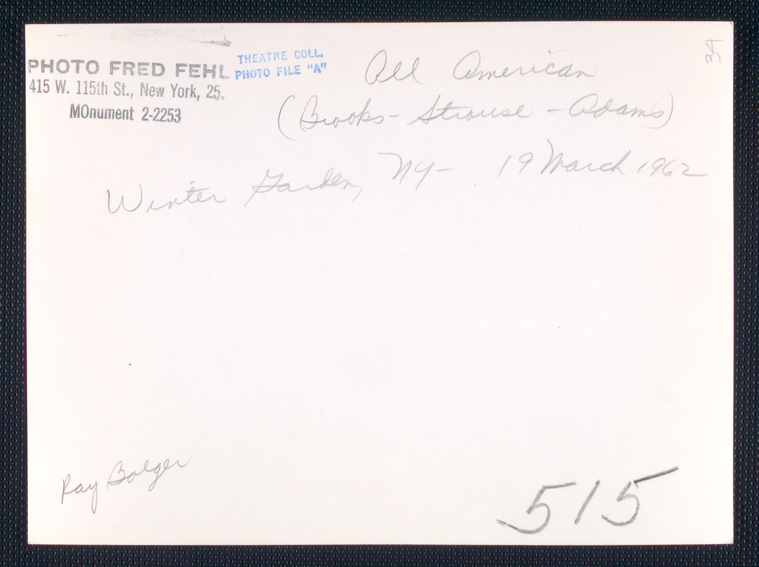 PHOTO FRED FEHL
415 W. 115th St., New York, 25.
MOnument 2-2253
THEATRE COLL.
PHOTO FILE "A"
All American
(Brooks - Strouse - Adams)
Winter Garden, NY - 19 March 1962
Ray Bolger
515